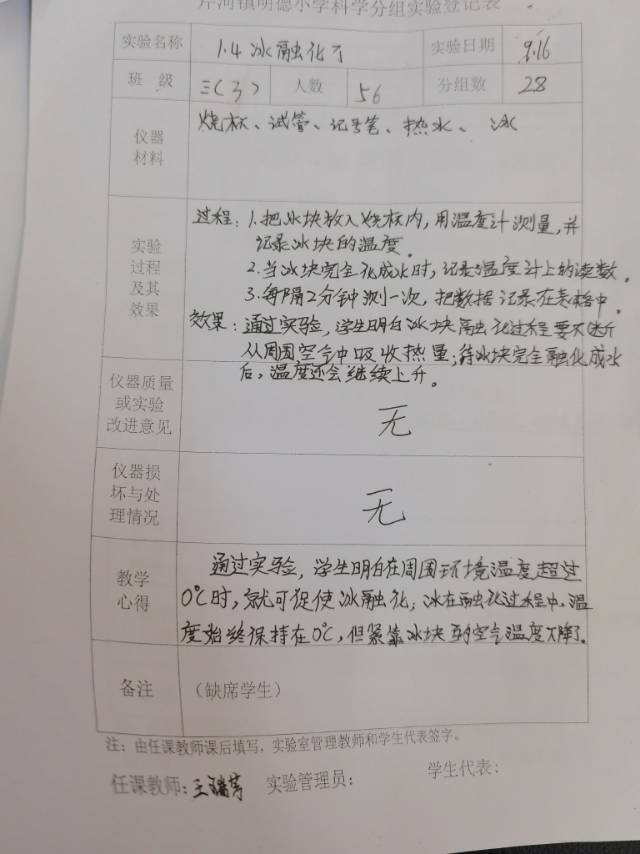 芹河镇明德小学科学分组实验登记表
实验名称 1.4冰融化了 实验日期 9.16
班级 三(3) 人数 56 分组数 28
仪器材料 烧杯、试管、记号笔、热水、冰
实验过程及其效果 过程:1.把冰块放入烧杯内,用温度计测量,并
记录冰块的温度。
2.当冰块完全化成水时,记录温度计上的读数。
3.每隔2分钟测一次,把数据记录在表格中。
效果:通过实验,学生明白冰块融化过程要不断
从周围空气中吸收热量;待冰块完全融化成水
后,温度还会继续上升。
仪器质量或实验改进意见 无
仪器损坏与处理情况 无
教学心得 通过实验,学生明白在周围环境温度超过
0℃时,就可促使冰融化;冰在融化过程中,温
度始终保持在0℃,但紧靠冰块的空气温度下降了。
备注 (缺席学生)
注:由任课教师课后填写,实验室管理教师和学生代表签字。
任课教师: 实验管理员: 学生代表: